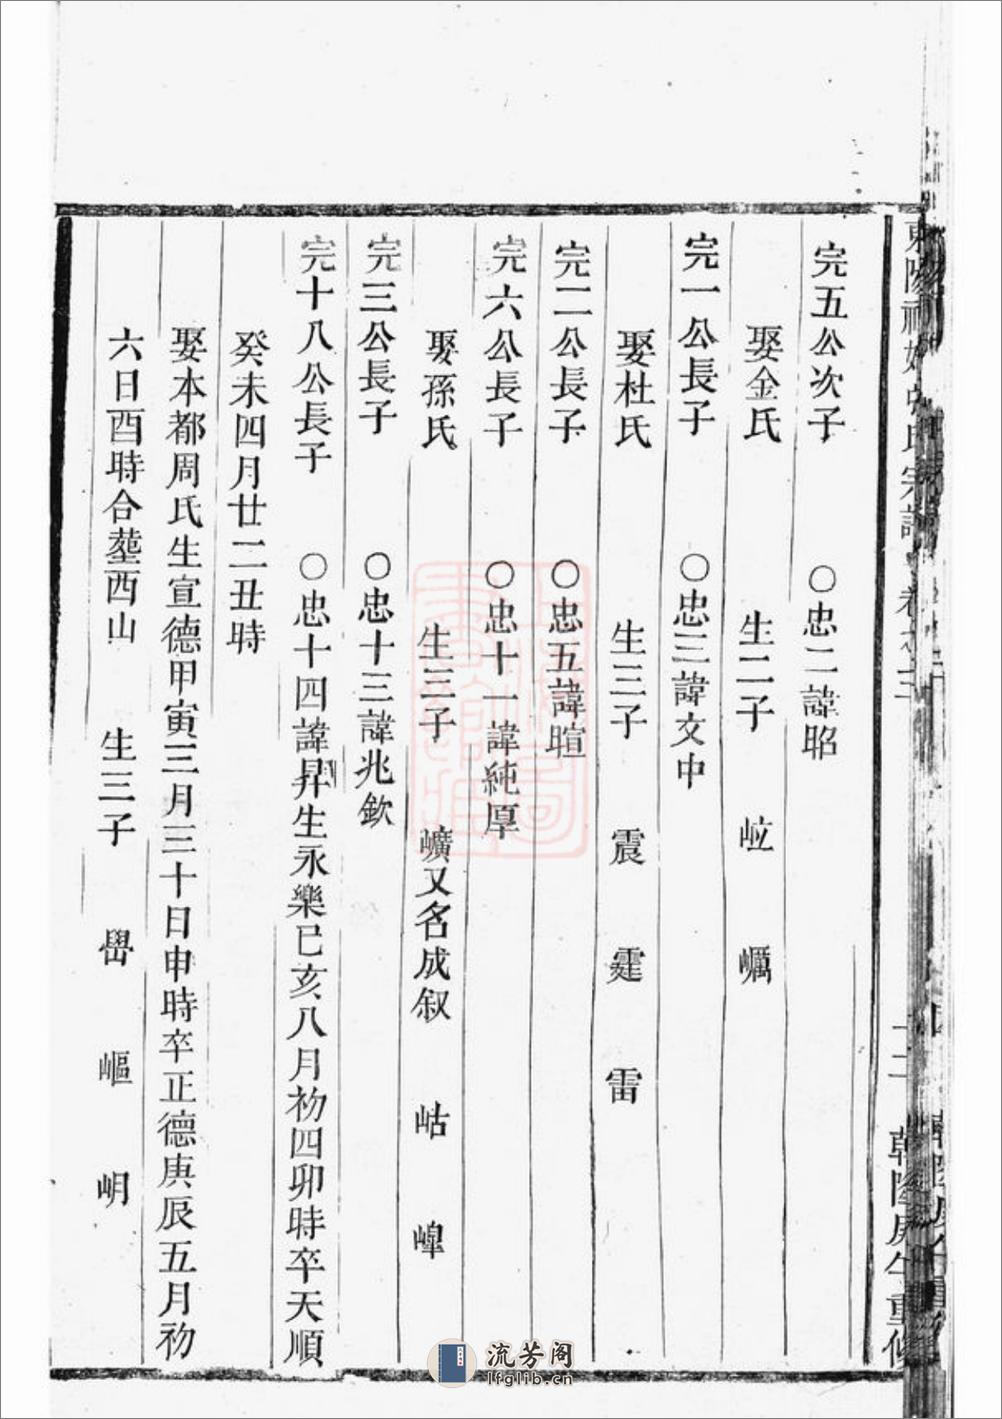 完五公次子　○忠二諱昭
娶金氏　生二子　㟉　㠣
完一公長子　○忠三諱文中
娶杜氏　生三子　震　霆　雷
完二公長子　○忠五諱暄
完六公長子　○忠十一諱純厚
娶孫氏　生三子　㠠又名成叙　岵　崲
完三公長子　○忠十三諱兆欽
完十八公長子　○忠十四諱昇生永樂己亥八月初四卯時卒天順
癸未四月廿二丑時
娶本都周氏生宣德甲寅三月三十日申時卒正德庚辰五月初
六日酉時合塟西山　生三子　嶨　嶇　岄
流芳阁
lfglib.cn